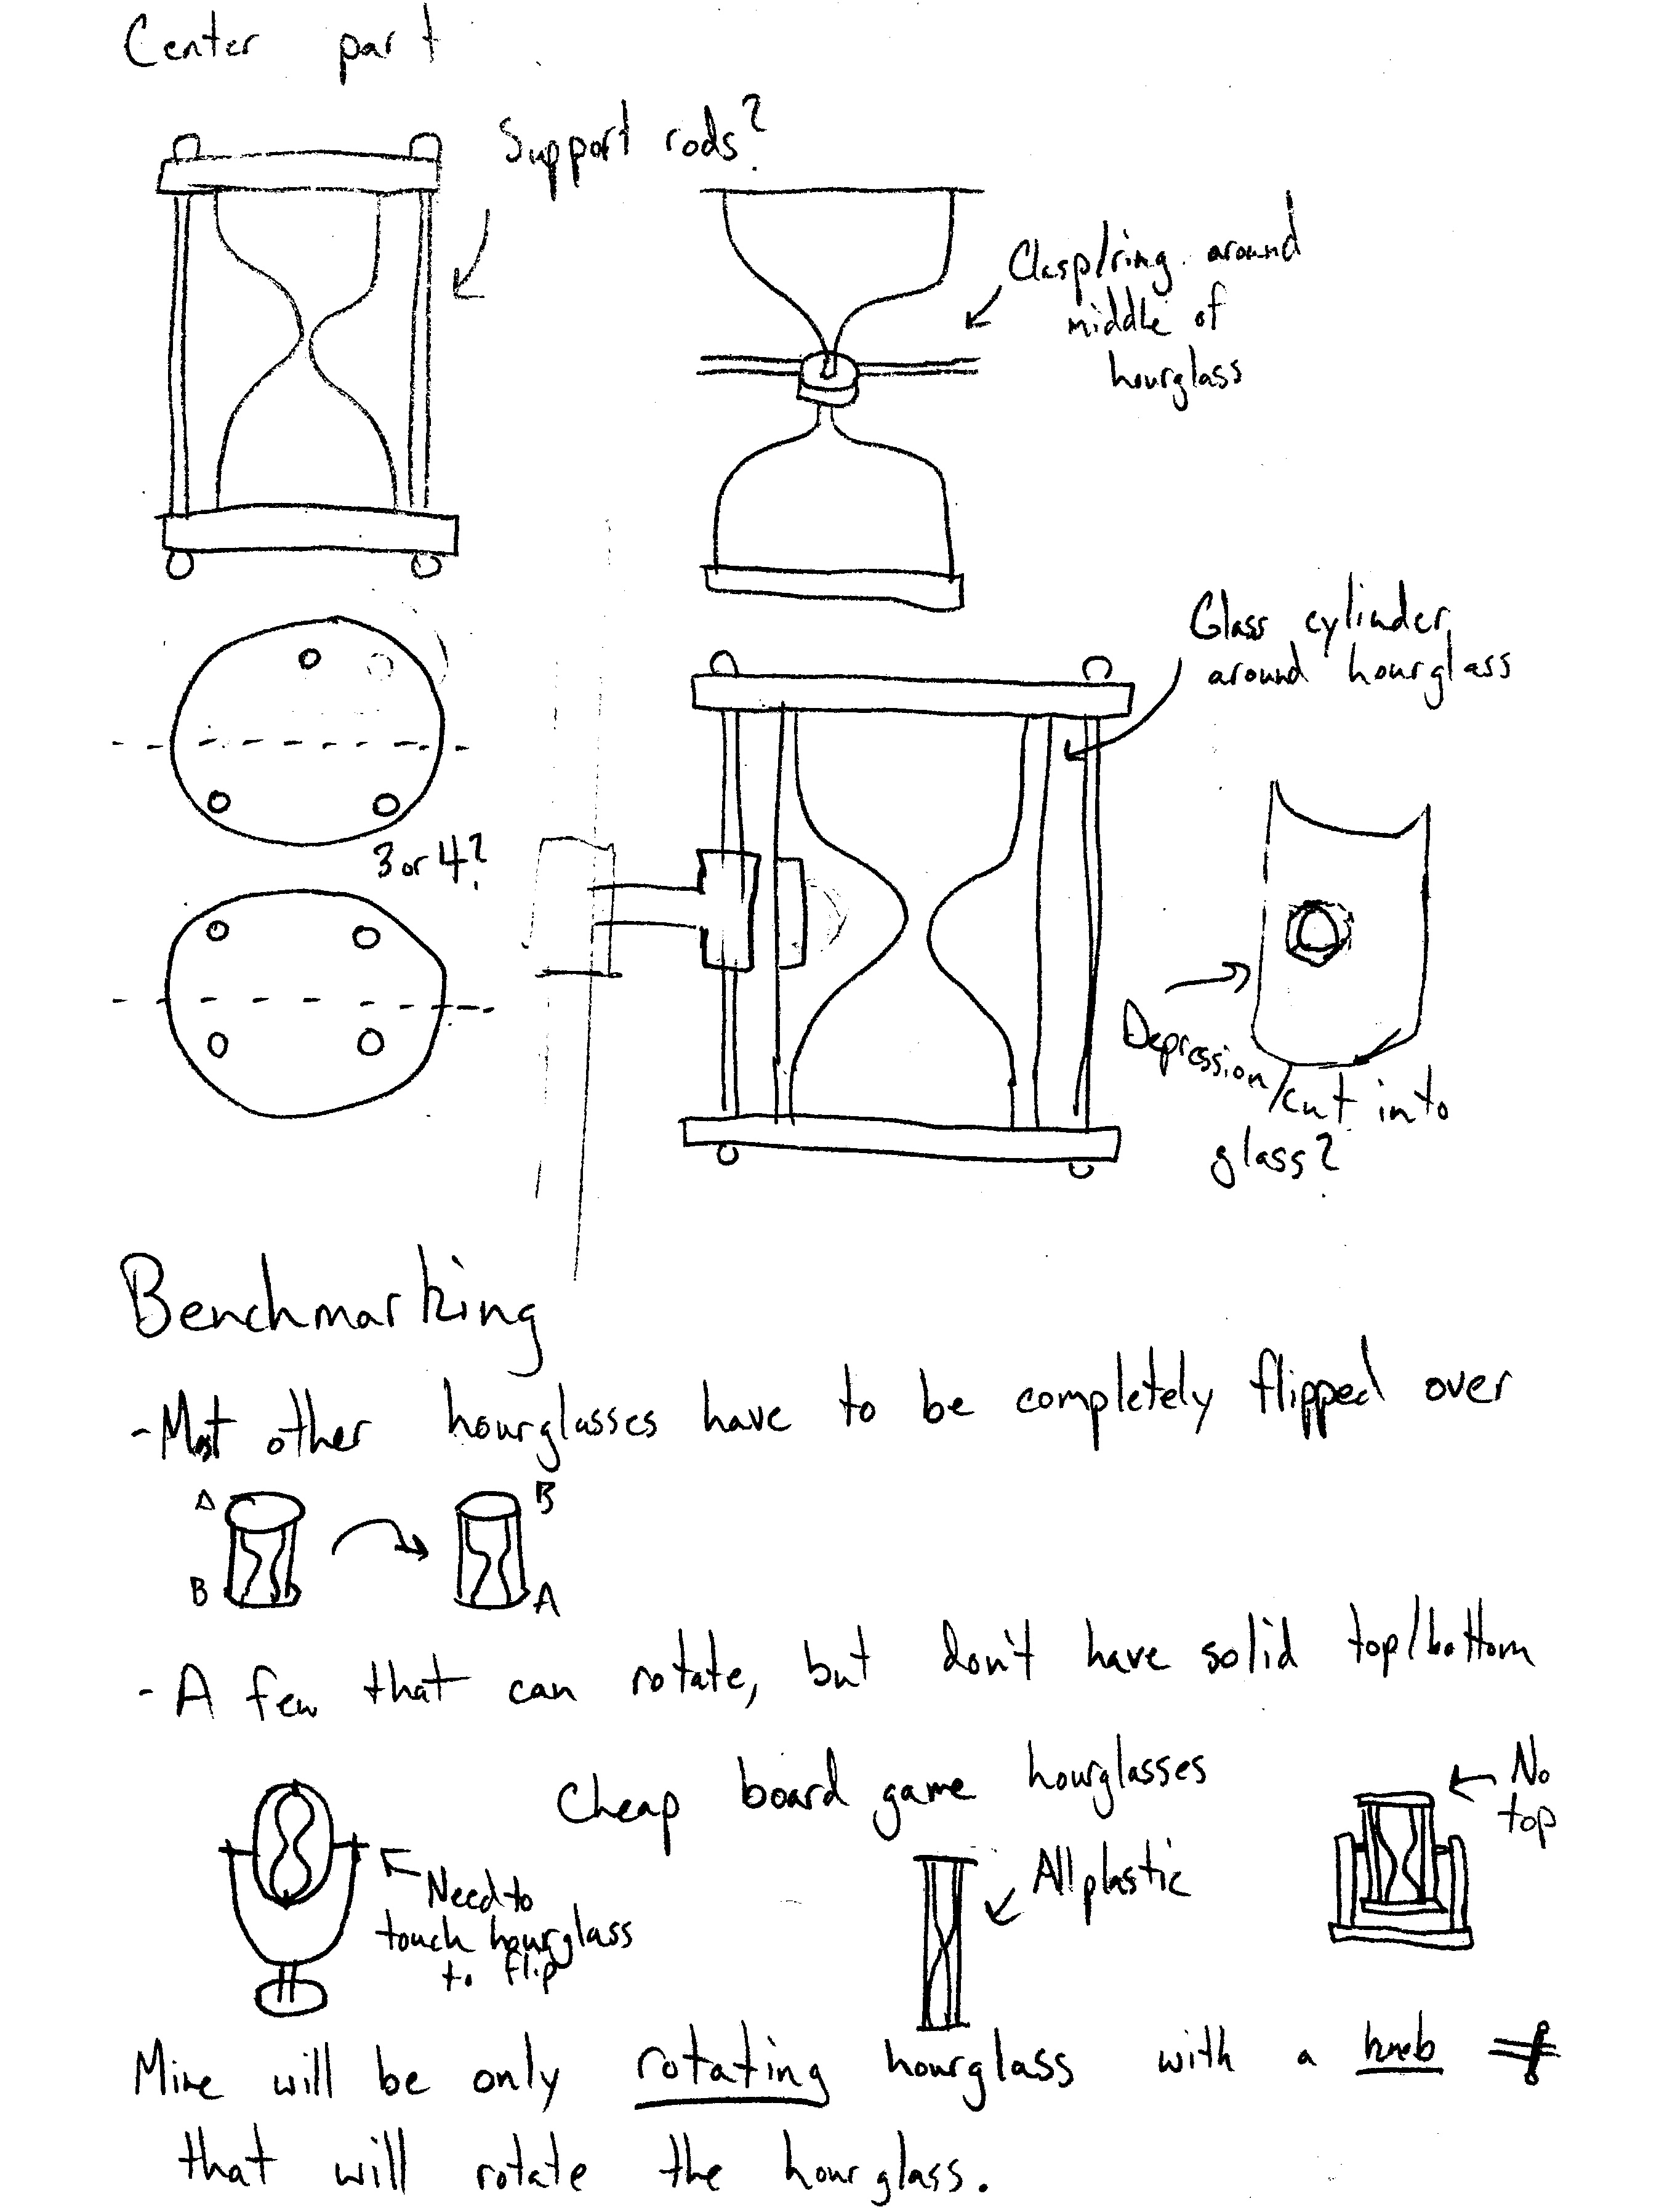 Center part
Support rods?
Clasp/ring around
middle of
hourglass
Glass cylinder
around hourglass
3 or 4?
Depression/cut into
glass?
Benchmarking
- Most other hourglasses have to be completely flipped over
A B
B A
- A few that can rotate, but don't have solid top/bottom
Cheap board game hourglasses
No
top
Need to
touch hourglass
to flip
All plastic
Mine will be only rotating hourglass with a knob
that will rotate the hourglass.